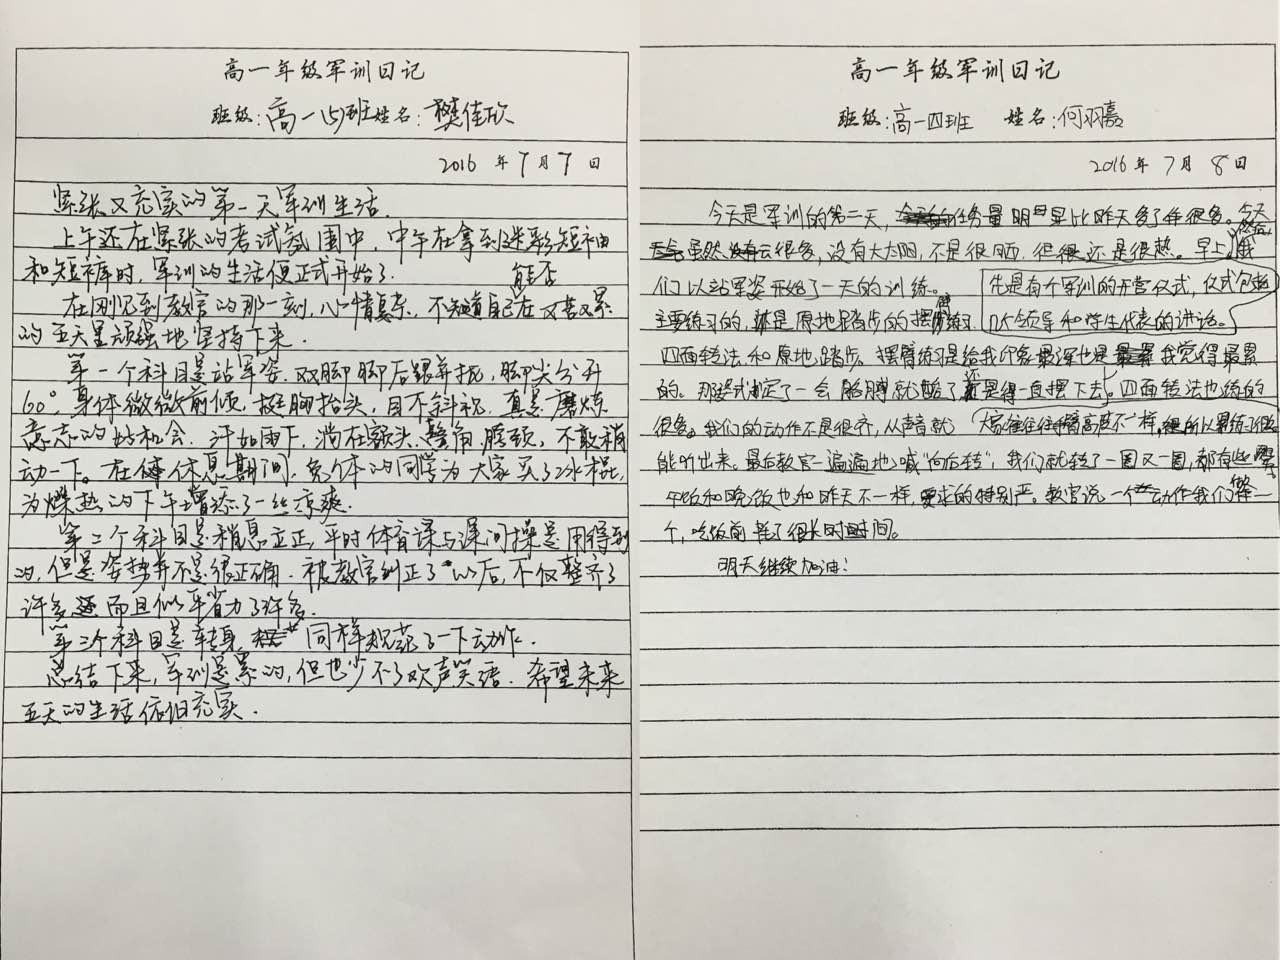 高一年级军训日记
班级:高一(5)班姓名:樊佳欣
2016年7月7日
紧张又充实的第一天军训生活.
上午还在紧张的考试氛围中,中午在拿到迷彩短袖
和短裤时,军训的生活便正式开始了.
在刚见到教官的那一刻,心情复杂.不知道自己能否在又苦又累
的五天里顽强地坚持下来.
第一个科目是站军姿.双脚脚后跟并拢,脚尖分开
60°,身体微微前倾,挺胸抬头,目不斜视,真是磨炼
意志的好机会.汗如雨下,淌在额头、鬓角、脖颈,不敢稍
动一下。在休息期间,免体的同学为大家买了冰棍,
为燥热的下午增添了一丝凉爽.
第二个科目是稍息立正,平时体育课与课间操是用得到
的,但是姿势并不是很正确.被教官纠正了以后,不仅整齐了
许多而且似乎省力了许多.
第三个科目是转身 同样规范了一下动作.
总结下来,军训是累的,但也少不了欢声笑语.希望未来
五天的生活依旧充实.
高一年级军训日记
班级:高一四班 姓名:何羽嘉
2016年7月8日
今天是军训的第二天,任务量明显比昨天多了很多。今天
虽然云很多,没有大太阳,不是很晒,但还是很热。早上我
们以站军姿开始了一天的训练。先是有个军训的开营仪式,仪式包括
几个领导和学生代表的讲话。
主要练习的,就是原地踏步的摆臂练习
四面转法和原地踏步。摆臂练习是给我印象最深也是我觉得最累
的。那姿式才定了一会胳膊就酸了还是得一直摆下去。四面转法也练的
很多。我们的动作不是很齐,从声音就
大家往往手臂高度不一样,所以累练习了很久
能听出来。最后教官一遍遍地喊“向后转”,我们就转了一圈又一圈,都有些晕
午饭和晚饭也和昨天不一样,要求的特别严。教官说一个动作我们做一
个,吃饭前 了很长时间。
明天继续加油!